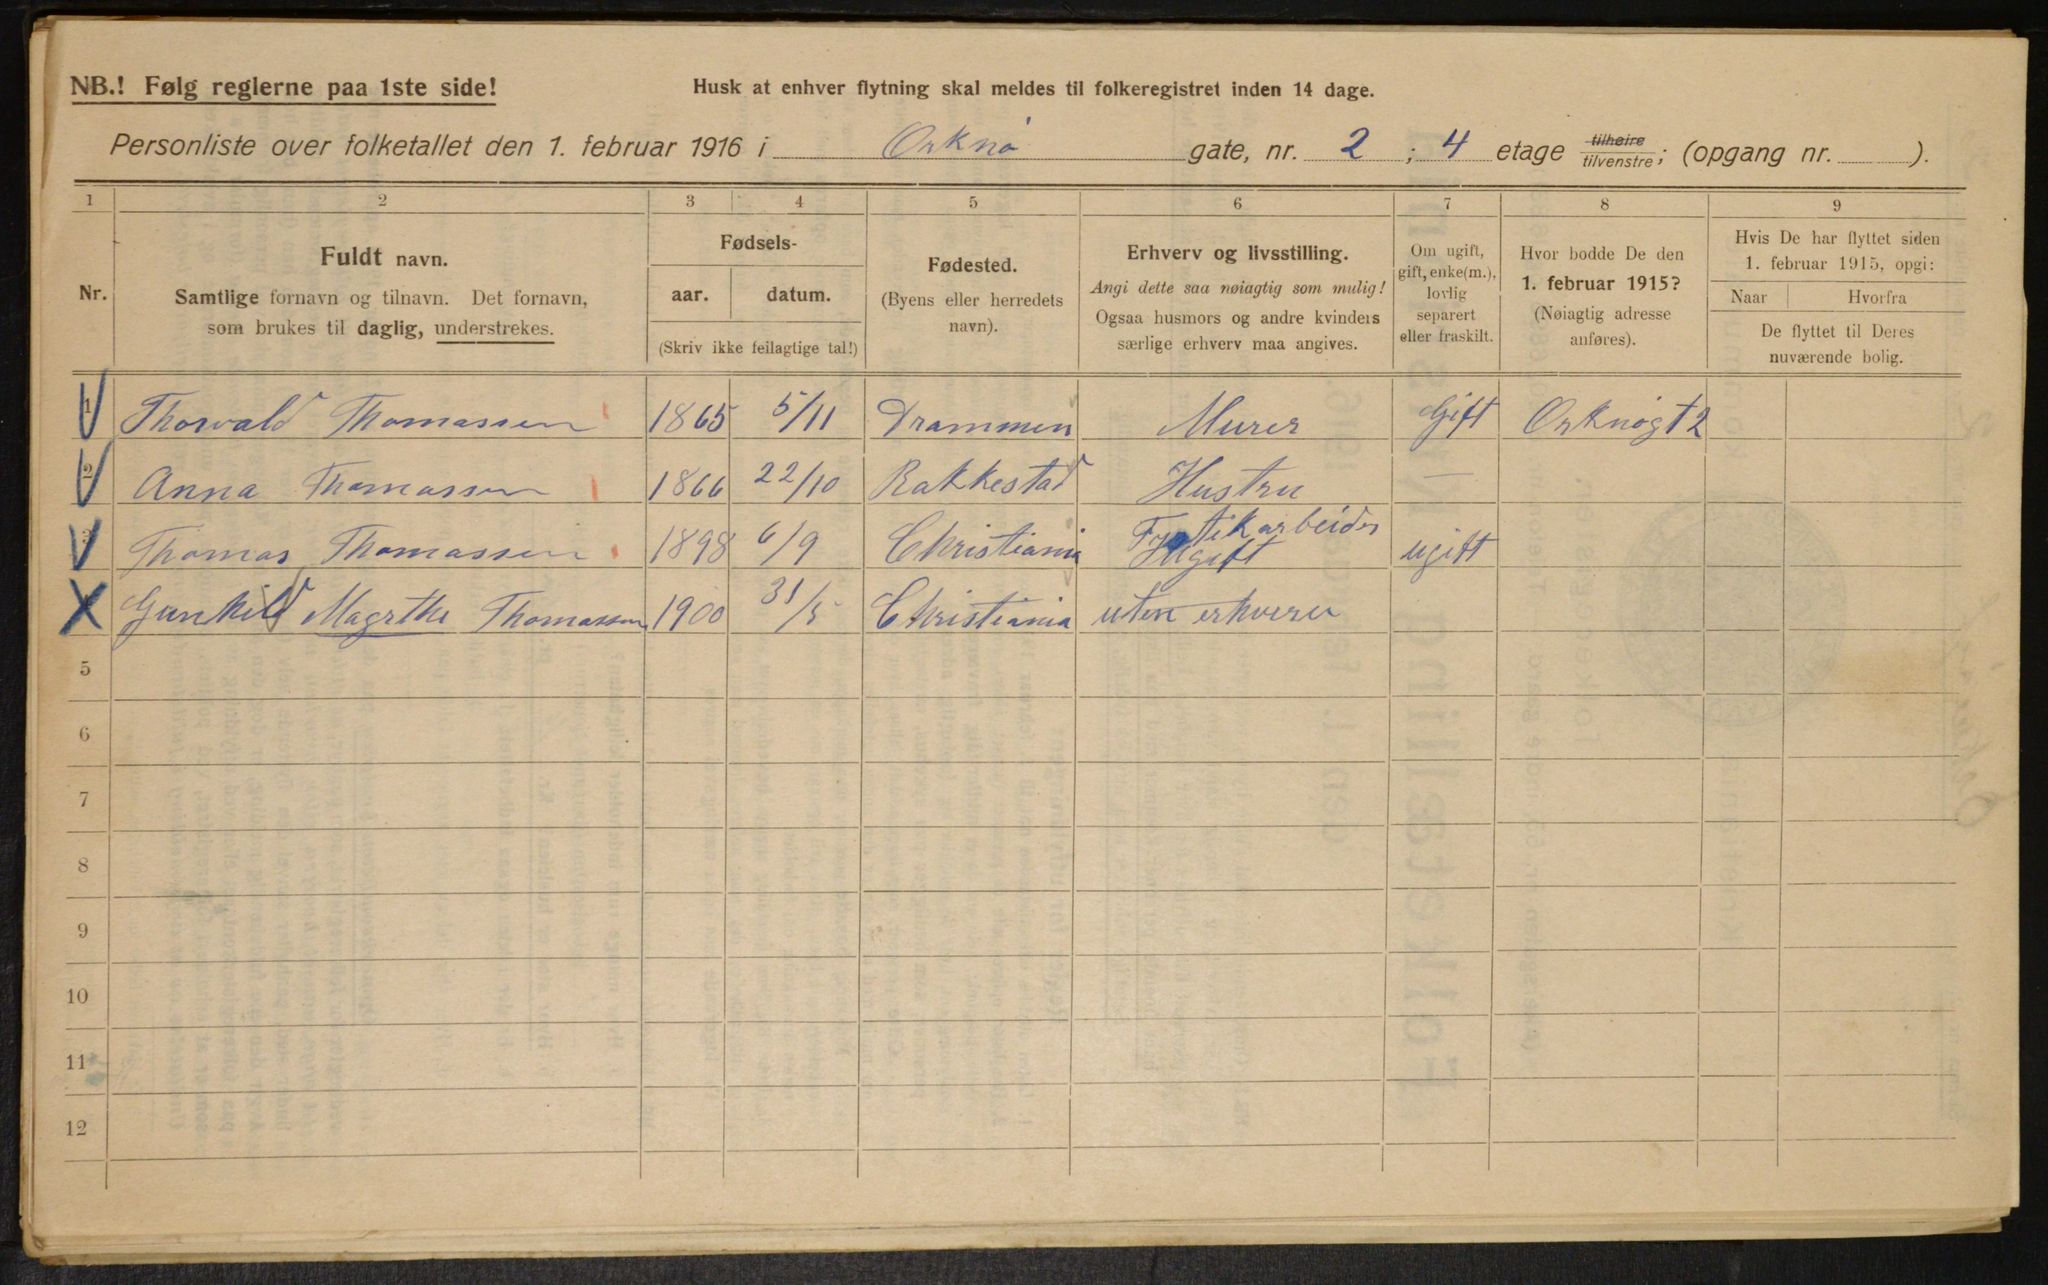 NB.! Følg reglerne paa 1ste side!
Husk at enhver flytning skal meldes til folkeregistret inden 14 dage.
Personliste over folketallet den 1. februar 1916 i Orknø gate, nr. 2 ; 4 etage tilhøire tilvenstre; (opgang nr. ).
1 2 3 4 5 6 7 8 9
Nr.
Fuldt navn.
Samtlige fornavn og tilnavn. Det fornavn,
som brukes til daglig, understrekes.
Fødsels-
aar. datum.
(Skriv ikke feilagtige tal!)
Fødested.
(Byens eller herredets
navn).
Erhverv og livsstilling.
Angi dette saa nøiagtig som mulig!
Ogsaa husmors og andre kvinders
særlige erhverv maa angives.
Om ugift,
gift, enke(m.),
lovlig
separert
eller fraskilt.
Hvor bodde De den
1. februar 1915?
(Nøiagtig adresse
anføres).
Hvis De har flyttet siden
1. februar 1915, opgi:
Naar Hvorfra
De flyttet til Deres
nuværende bolig.
1 Thorvald Thomassen 1865 5/11 Drammen Murer Gift Orknøgt 2
2 Anna Thomassen 1866 22/10 Rakkestad Hustru —
3 Thomas Thomassen 1898 6/9 Christiania ugift
Gunhild Magrthe Thomassen 1900 31/5 Christiania uten erhverv
5
6
7
8
9
10
11
12